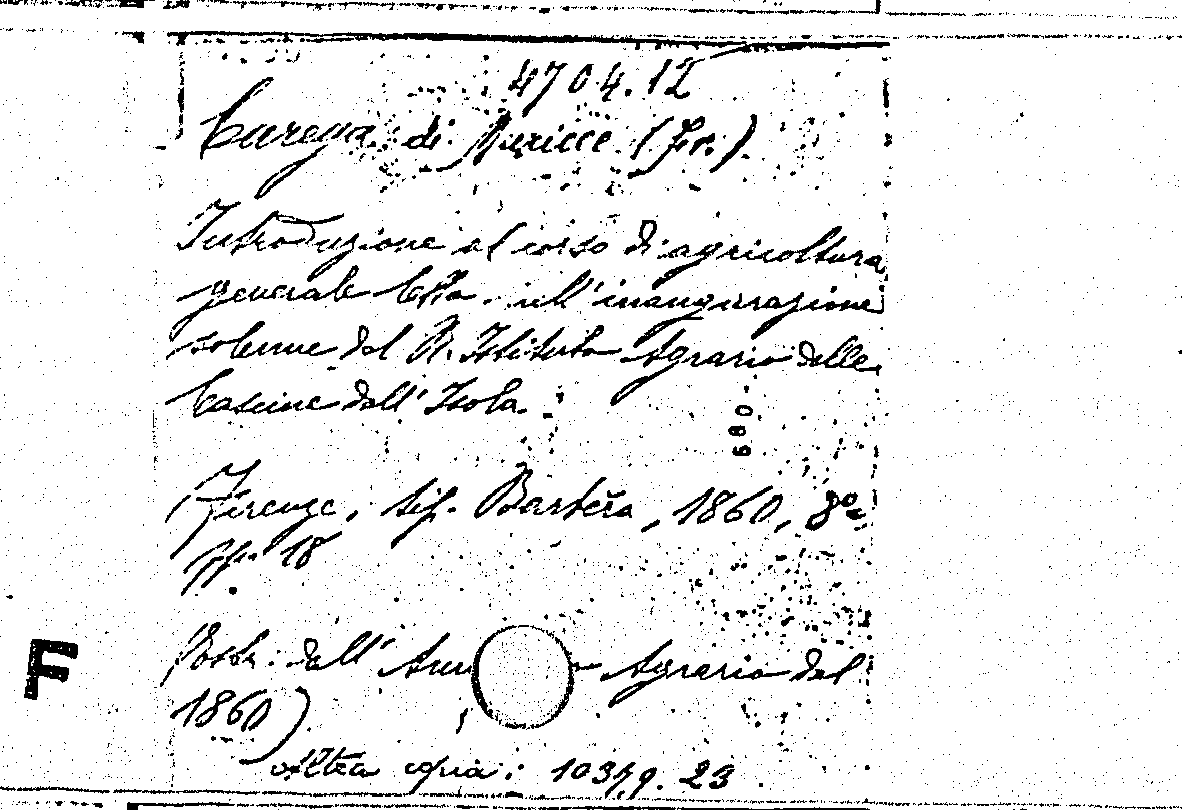 4704.12
Carega di Muricce (Fr.)
Introduzione al corso di agricoltura
generale letta nell'inaugurazione
solenne del R. Istituto Agrario delle
Cascine dell'Isola.
680
Firenze, tip. Barbèra, 1860, 8º
pp. 18
(Estr. dall' Agrario del
1860)
Altra copia: 10349. 23
F